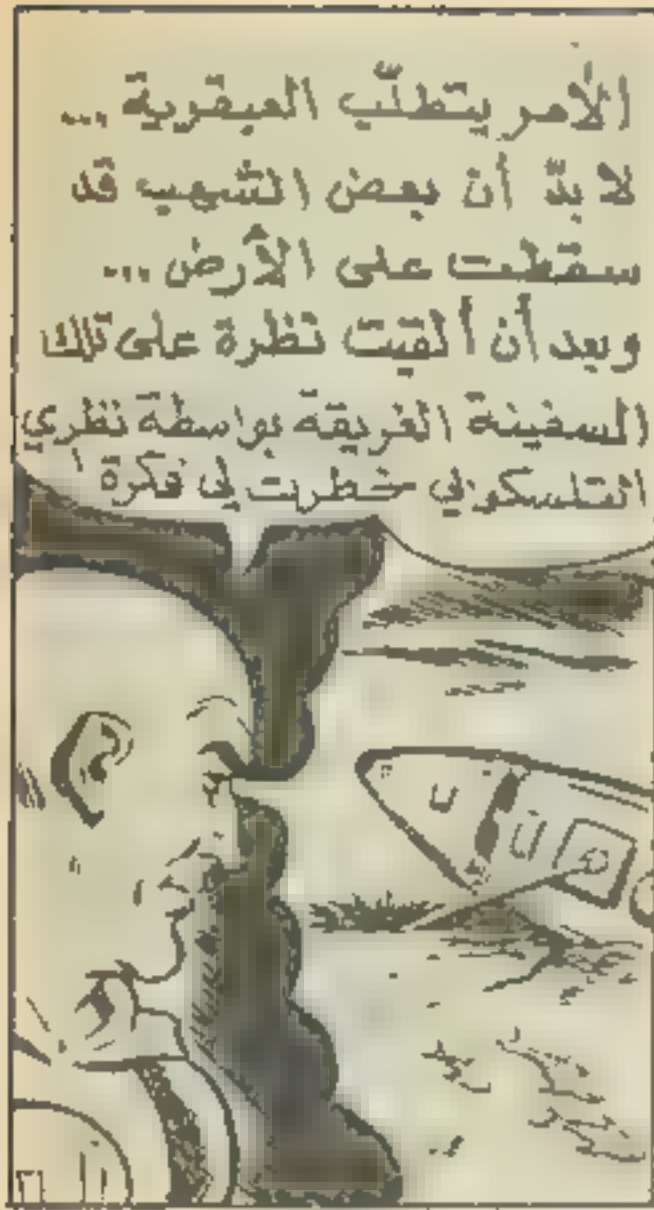 الأمر يتطلّب العبقرية ...
لا بدّ أن بعض الشهب قد
سقطت على الأرض ...
وبعد أن ألقيت نظرة على تلك
السفينة الغريقة بواسطة نظري
التلسكوبي خطرت لي فكرة !